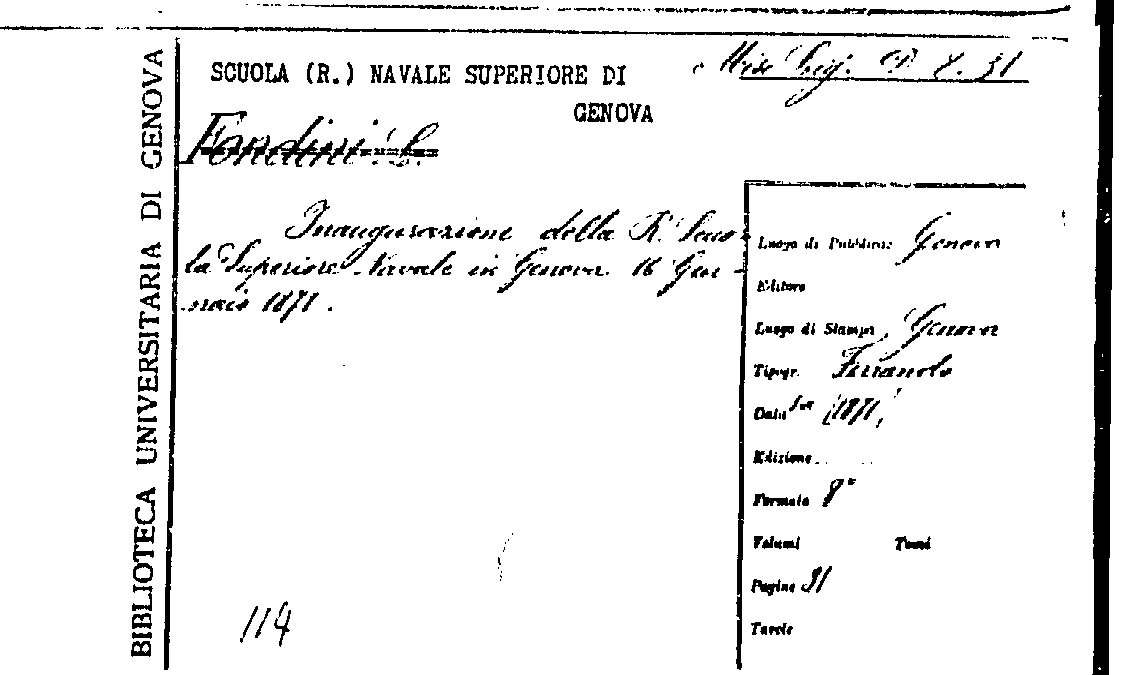 BIBLIOTECA UNIVERSITARIA DI GENOVA
SCUOLA (R.) NAVALE SUPERIORE DI
GENOVA
Misc Lig. D 8. 31
Fondini L.
Inaugurazione della R. Scuo-
la Superiore Navale in Genova 16 Gen-
naio 1871.
Luogo di Pubblic. Genova
Editore
Luogo di Stampa, Genova
Tipogr. Ferrando
Data (1871)
Edizione
Formato 8°
Volumi Tomi
Pagine 31
Tavole
114